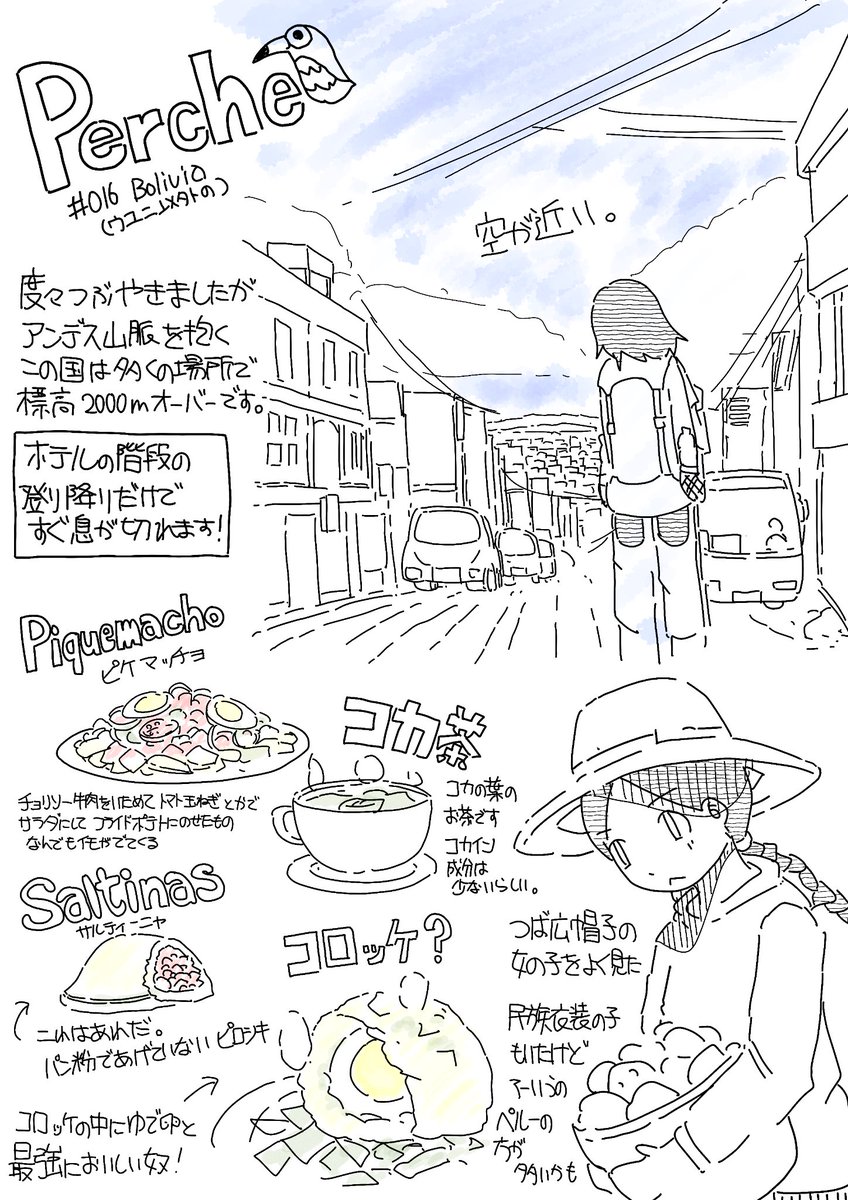 Perche
#016 Bolivia
(ウユニ以外の)
空が近い。
度々つぶやきましたが
アンデス山脈を抱く
この国は多くの場所で
標高2000mオーバーです。
ホテルの階段の
登り降りだけで
すぐ息が切れます!
Piquemacho
ピケマッチョ
チョリソー牛肉をいためてトマト玉ねぎとかで
サラダにしてフライドポテトにのせたもの
なんでもイモがでてくる
コカ茶
コカの葉の
お茶です
コカイン
成分は
少ないらしい。
Saltinas
サルティーニャ
これはあれだ。
パン粉であげていないピロシキ
コロッケ?
コロッケの中にゆで卵と
最強においしい奴!
つば広帽子の
女の子をよく見た
民族衣装の子
もいたけど
アーいうの
ペルーの
方が
多いかも